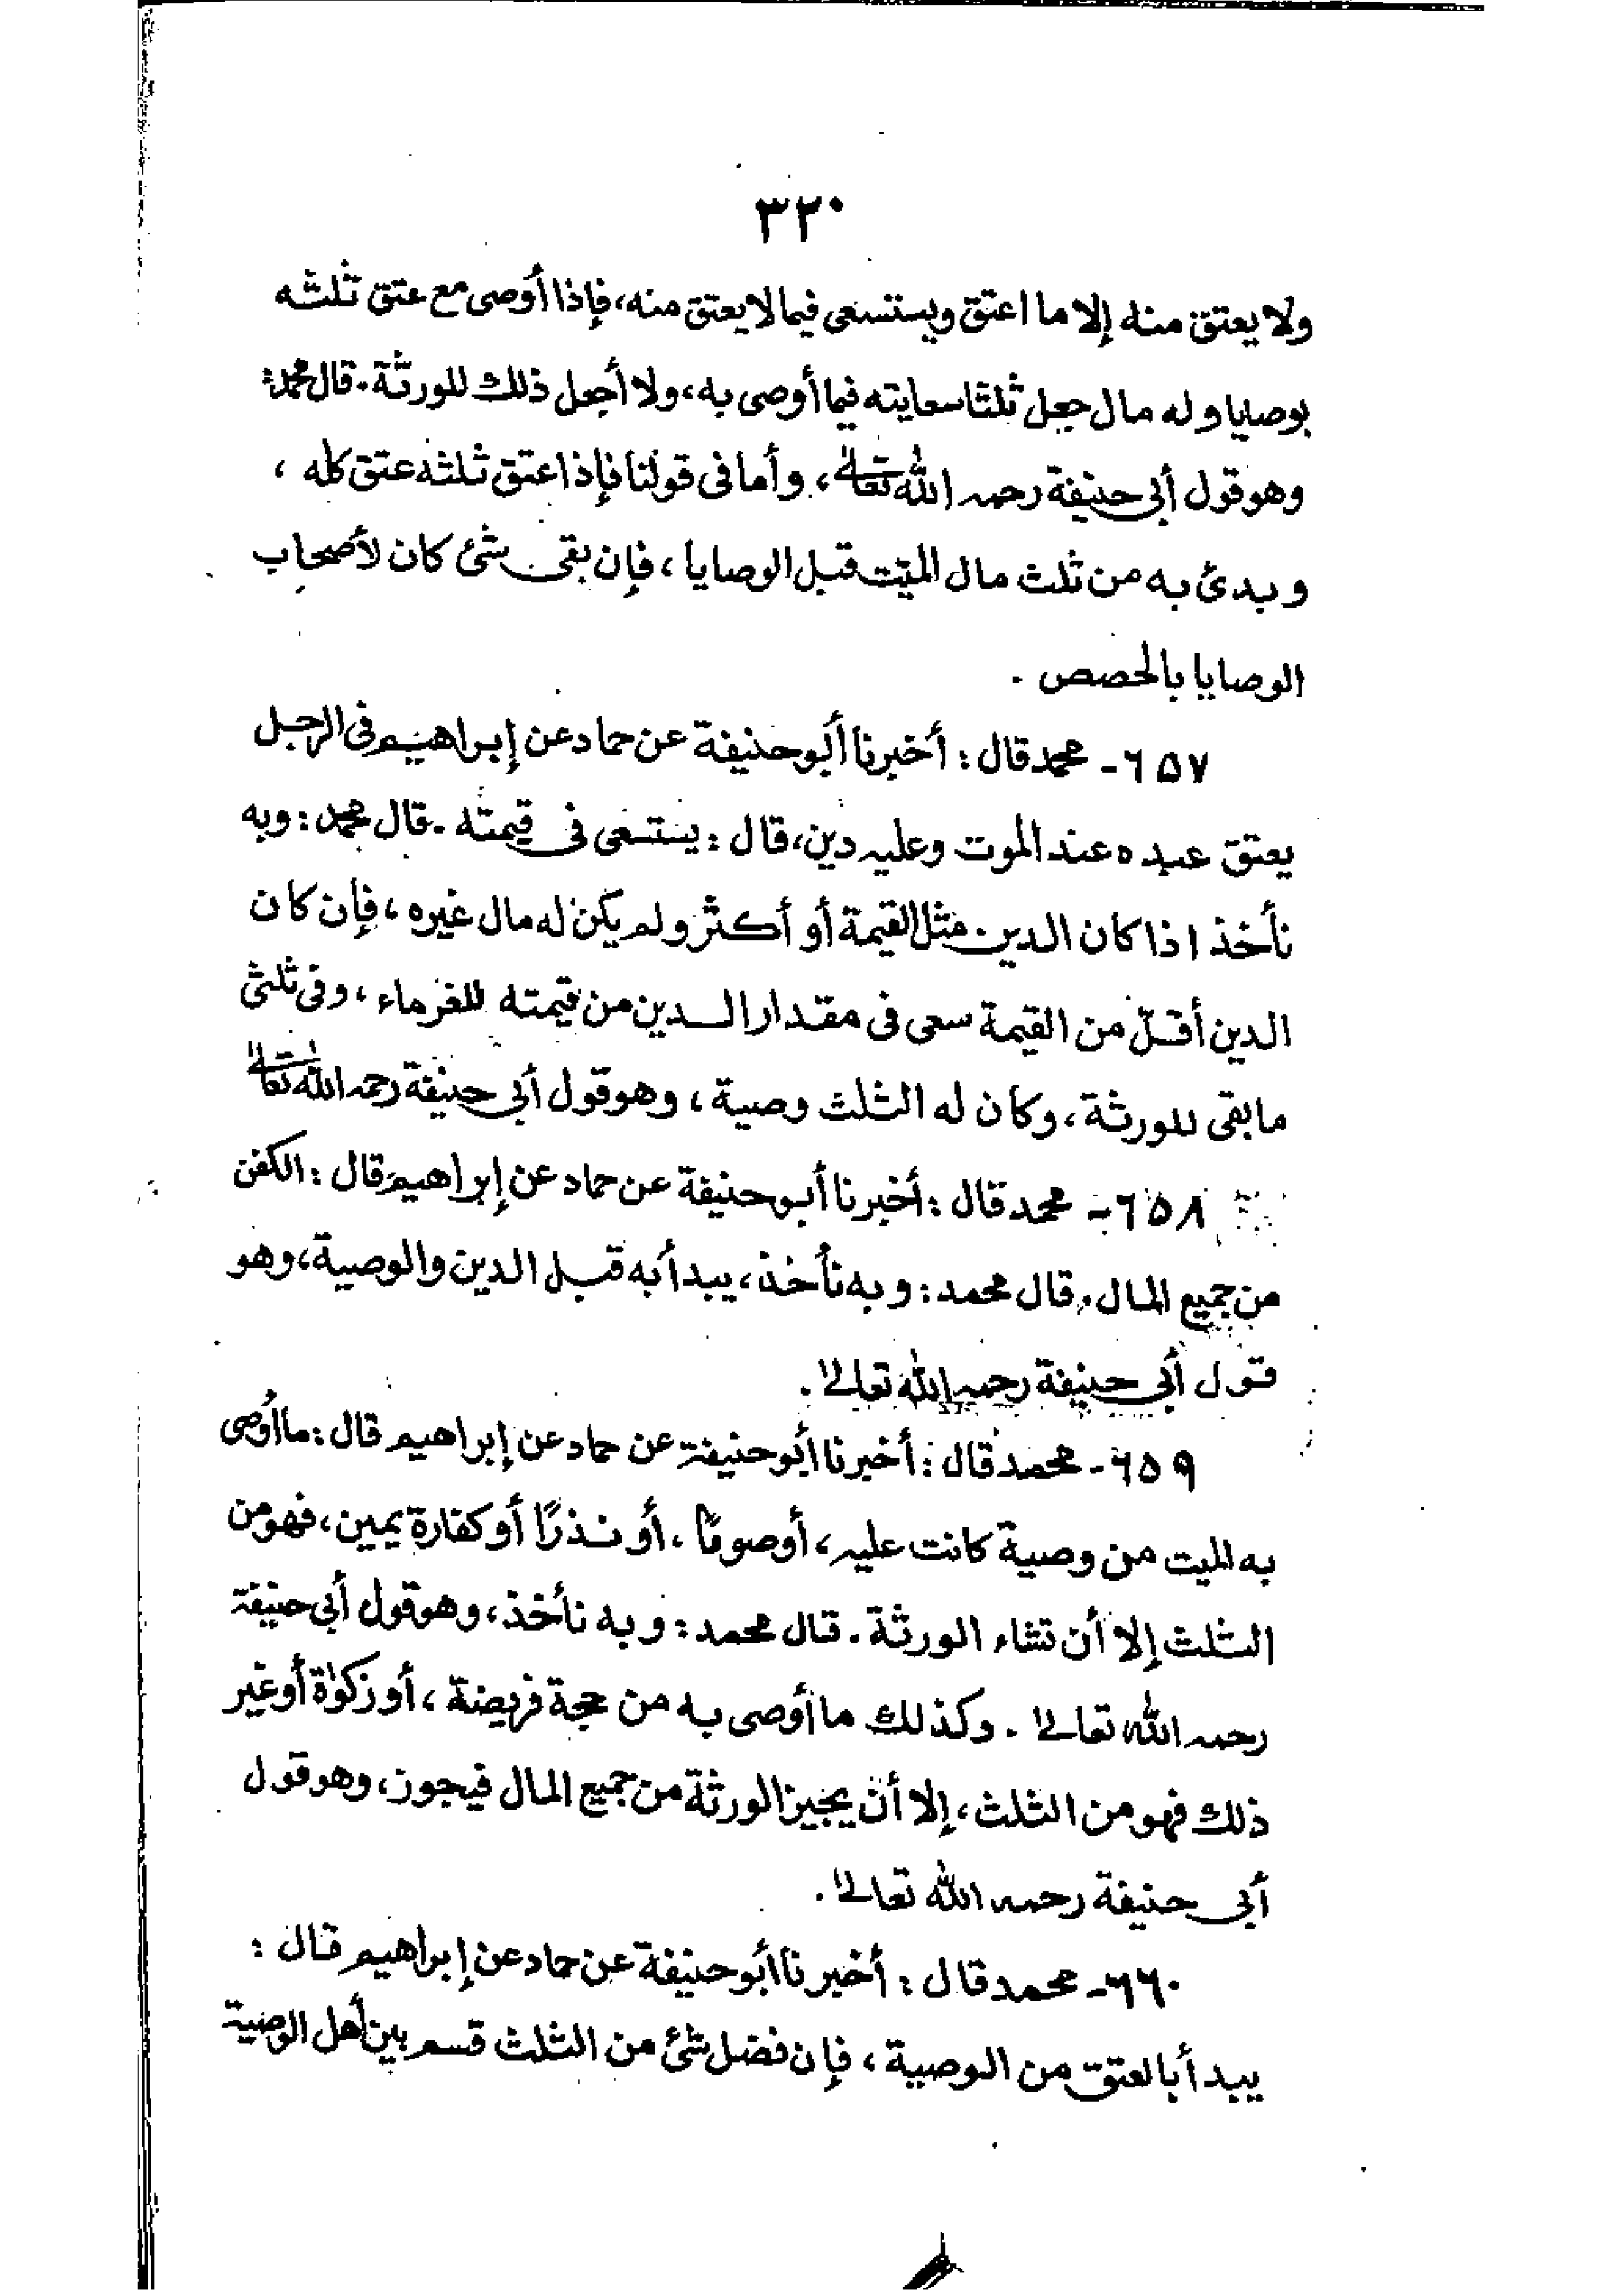 ٣٢٠
ولا يعتق منه إلا ما اعتق ويستسعى فيما لا يعتق منه، فإذا أوصى مع عتق ثلثه
بوصايا وله مال جعل ثلثا سعايته فيما أوصى به، ولا أجعل ذلك للورثة. قال محمد:
وهو قول أبي حنيفة رحمه الله تعالى، وأما في قولنا فإذا اعتق ثلثه عتق كله ،
وبدئ به من ثلث مال الميّت قبل الوصايا ، فإن بقى شئ كان لأصحاب
الوصايا بالحصص .
٦٥٧ - محمد قال : أخبرنا أبو حنيفة عن حماد عن إبراهيم في الرجل
يعتق عبده عند الموت وعليه دين، قال : يستسعى في قيمته . قال محمد : وبه
نأخذ اذا كان الدين مثل القيمة أو أكثر ولم يكن له مال غيره ، فإن كان
الدين أقلّ من القيمة سعى في مقدار الدين من قيمته للغرماء ، وفي ثلثي
ما بقى للورثة ، وكان له الثلث وصية ، وهو قول أبي حنيفة رحمه الله تعالى
٦٥٨ - محمد قال : أخبرنا أبو حنيفة عن حماد عن إبراهيم قال : الكفن
من جميع المال. قال محمد : وبه نأخذ ، يبدأ به قبل الدين والوصية، وهو
قول أبي حنيفة رحمه الله تعالى .
٦٥٩ - محمد قال : أخبرنا أبو حنيفة عن حماد عن إبراهيم قال : ما أوصى
به الميت من وصية كانت عليه ، أو صومًا ، أو نذرًا أو كفارة يمين ، فهو من
الثلث إلا أن تشاء الورثة . قال محمد : وبه نأخذ ، وهو قول أبي حنيفة
رحمه الله تعالى . وكذلك ما أوصى به من حجة فريضة ، أو زكوٰة أو غير
ذلك فهو من الثلث ، إلا أن يجيز الورثة من جميع المال فيجوز، وهو قول
أبي حنيفة رحمه الله تعالى .
٦٦٠ - محمد قال : أخبرنا أبو حنيفة عن حماد عن إبراهيم قال :
يبدأ بالعتق من الوصية ، فإن فضل شئ من الثلث قسم بين أهل الوصية